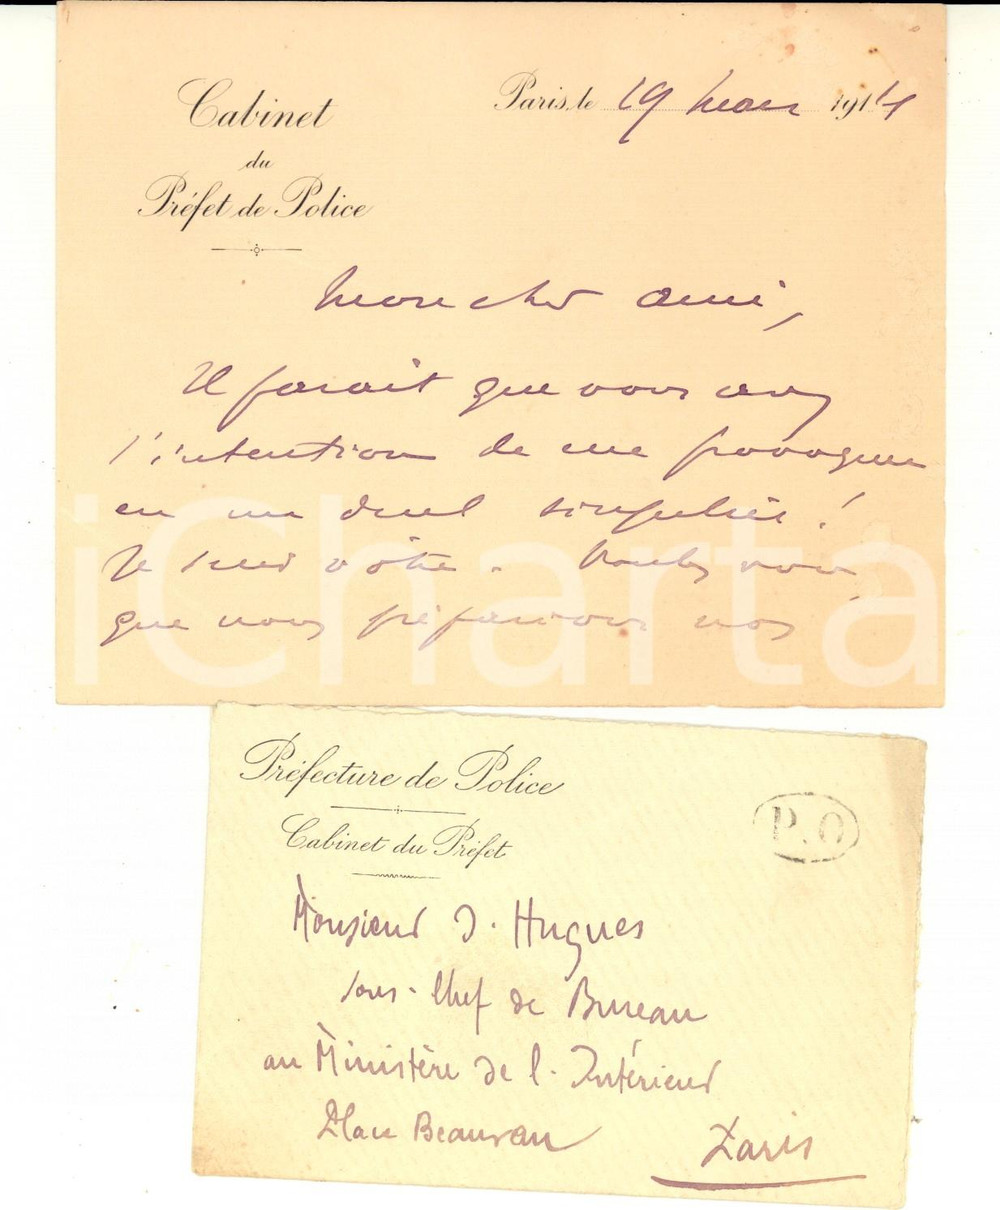 Cabinet
du
Préfet de Police
Paris, le 19 mars 1914
Mon cher ami,
Il parait que vous avez
l'intention de me provoquer
en un duel singulier !
Je suis vôtre. Voulez vous
que nous préparions nos
iCharta
Préfecture de Police
Cabinet du Préfet
P.O
Monsieur J. Hugues
sous-Chef de Bureau
au Ministère de l'Intérieur
Place Beauvau
Paris